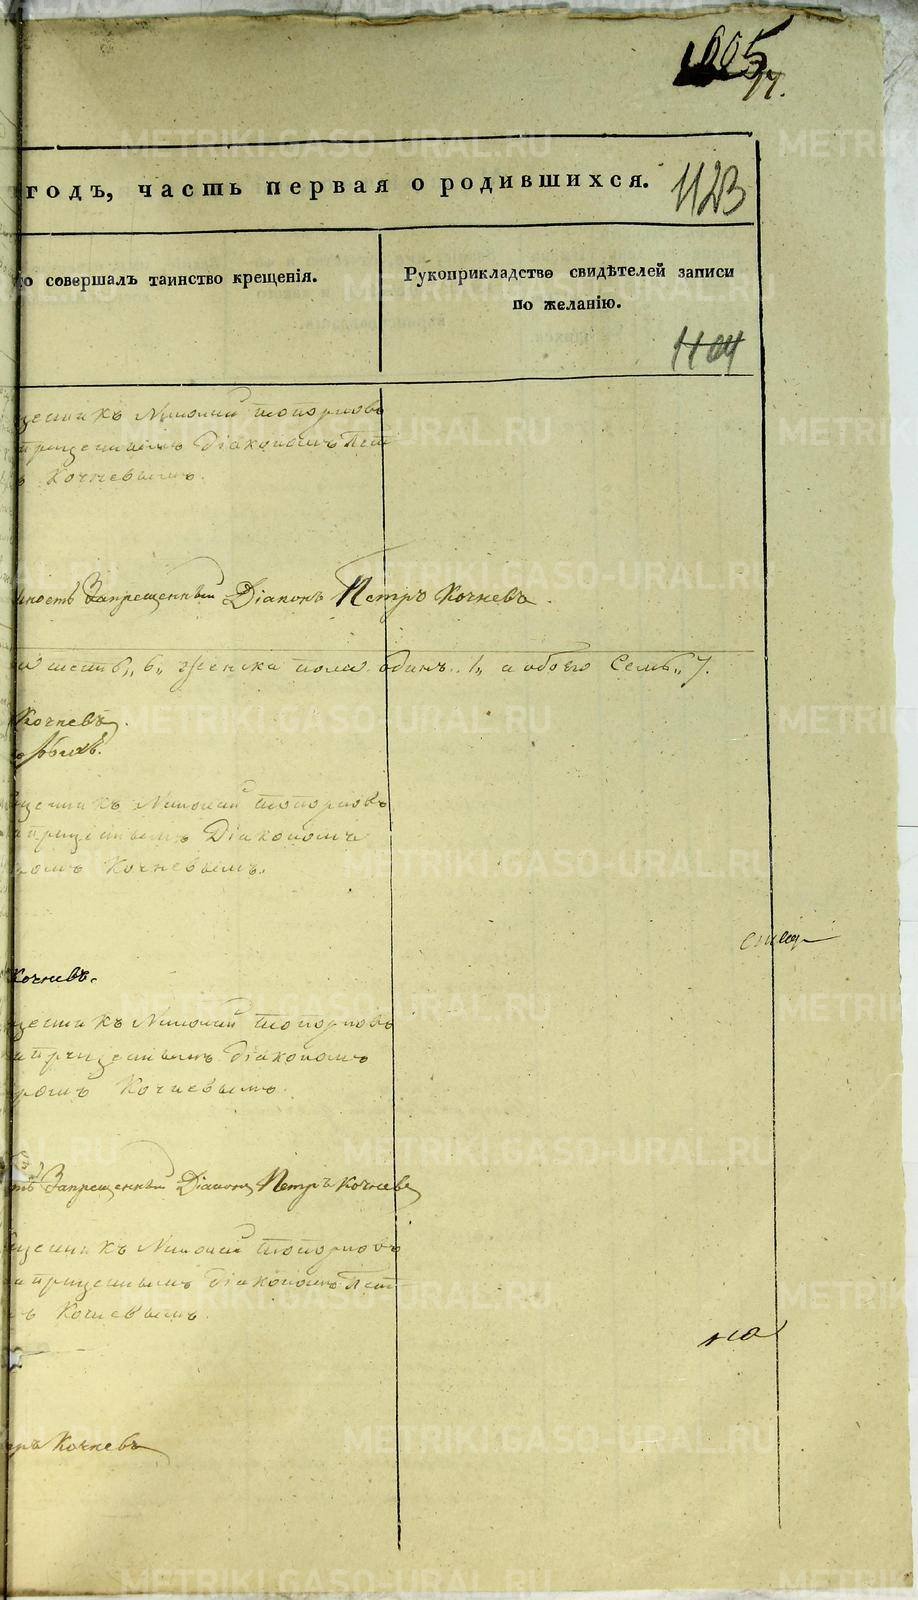 1005
77.
годъ, часть первая о родившихся.
1123
то совершалъ таинство крещенія.
Рукоприкладство свидѣтелей записи
по желанію.
1104
щенникъ Николай Топорковъ
запрещеннымъ Діакономъ Пет
ъ Кочневымъ.
ность Запрещенный Діаконъ Петръ Кочневъ.
шесть„ 6„ женска пола одинъ„ 1„ а обоего Семь„ 7.
Кочневъ.
щенникъ Николай Топорковъ
Діакономъ
ромъ Кочневымъ.
Кочневъ.
щенникъ Николай Топорковъ
Діакономъ
ромъ Кочневымъ.
ть Запрещенный Діаконъ Петръ Кочневъ
щенникъ Николай Топорковъ
Діакономъ Пет
ъ Кочневымъ.
тръ Кочневъ
METRIKI.GASO-URAL.RU